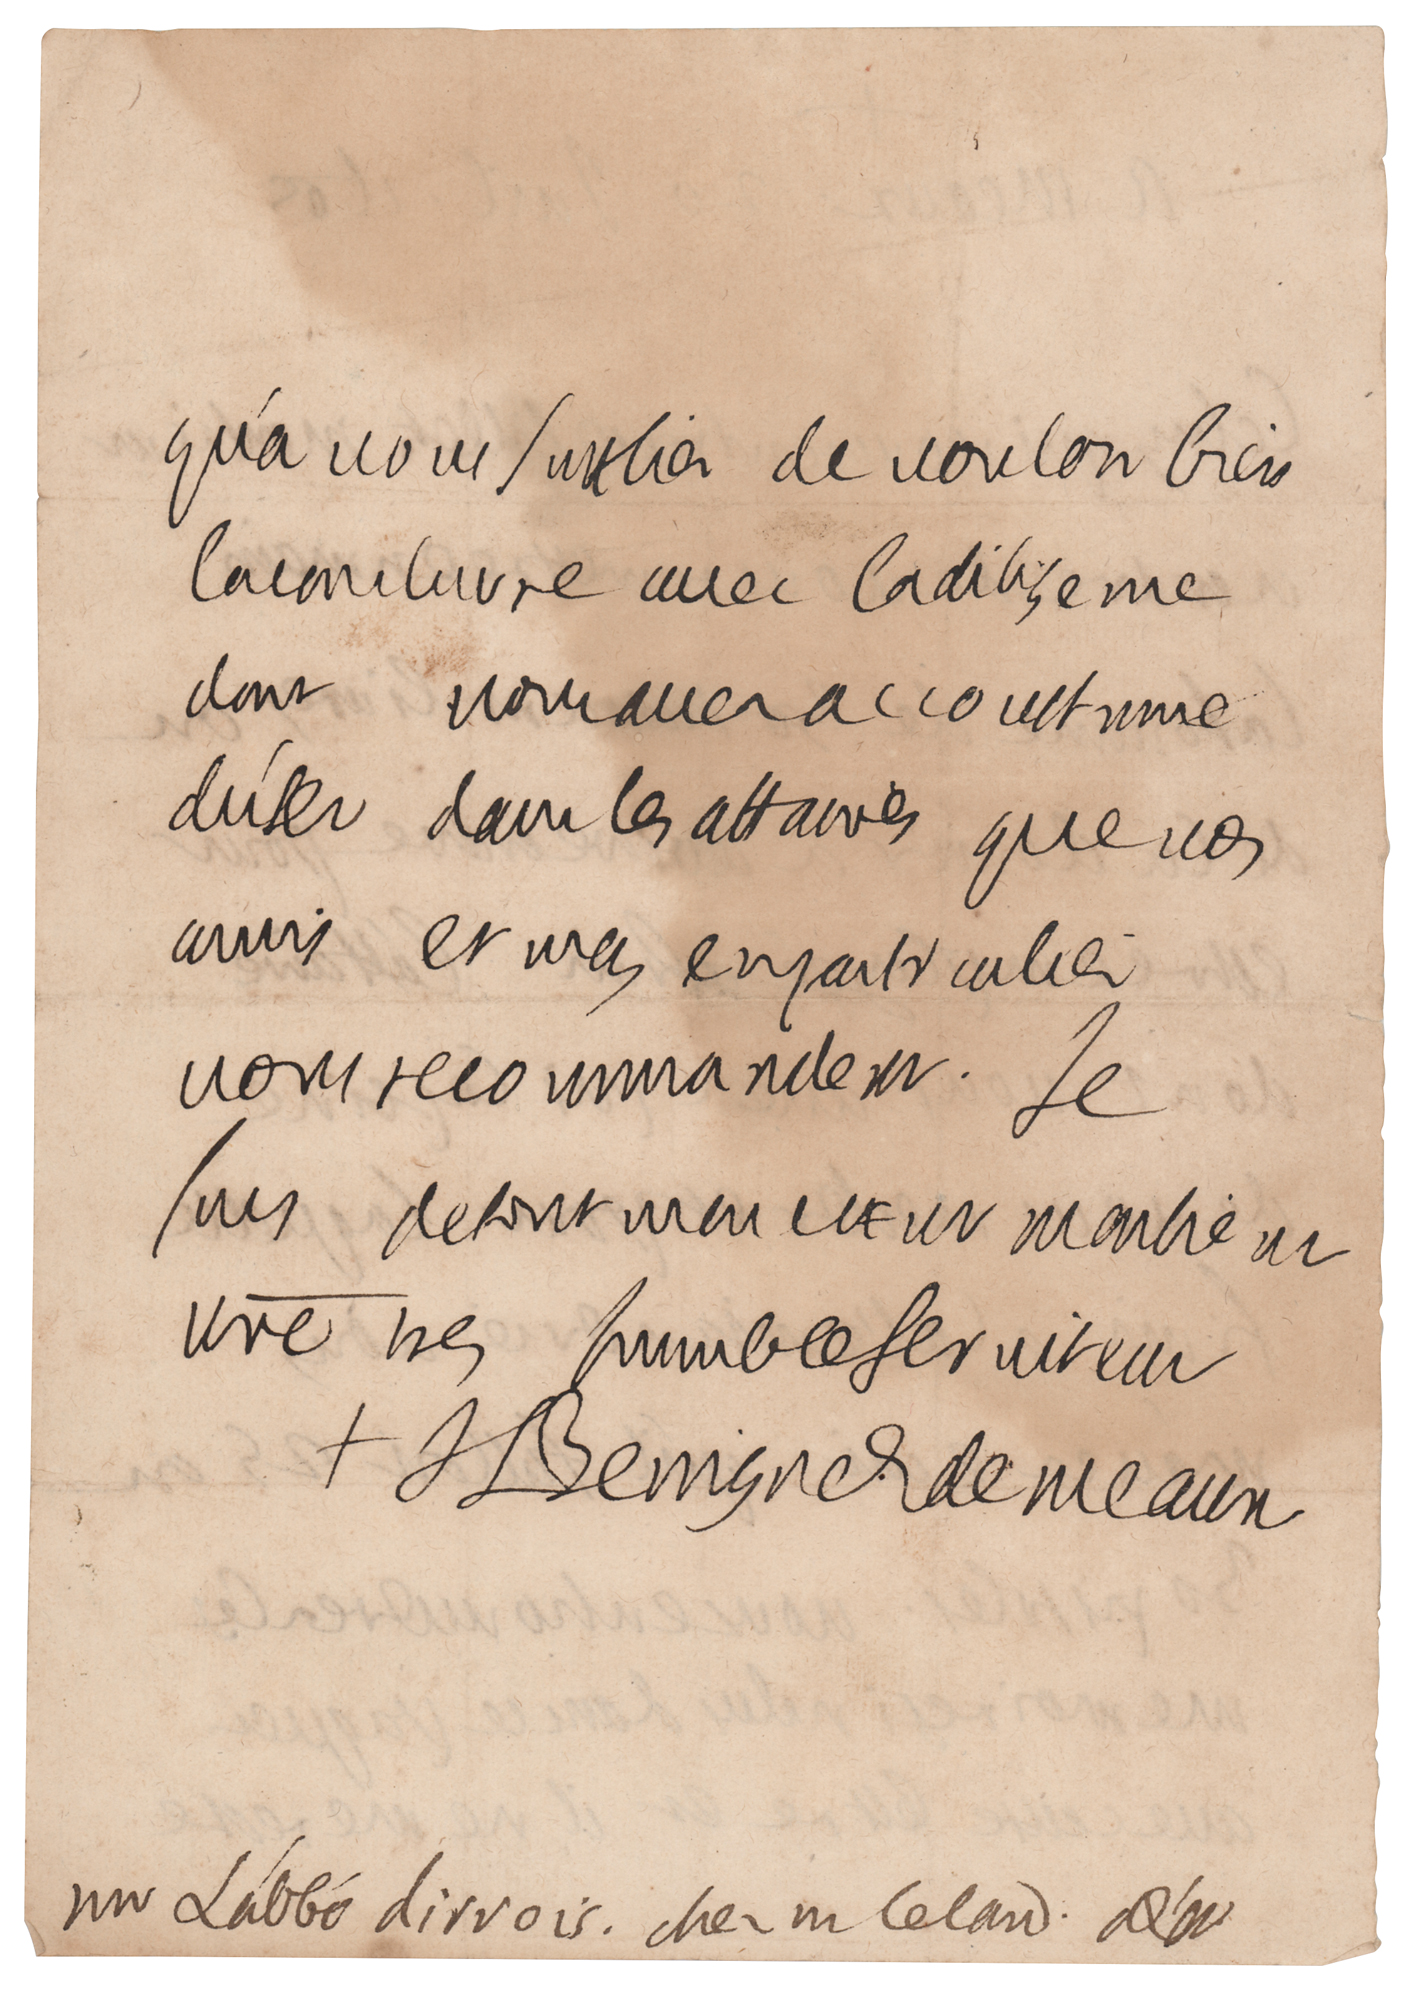 qu'a vous supplier de vouloir bien
la conclurre avec la diligence
dont vous avez accoustumé
d'user dans les affaires que vos
amis et moy en particulier
vous recommandent. Je
suis de tout mon cœur monsieur
vre tres humble serviteur
+ J Benigne E. de meaux
mr L'abbé dirrois. chez m le card.